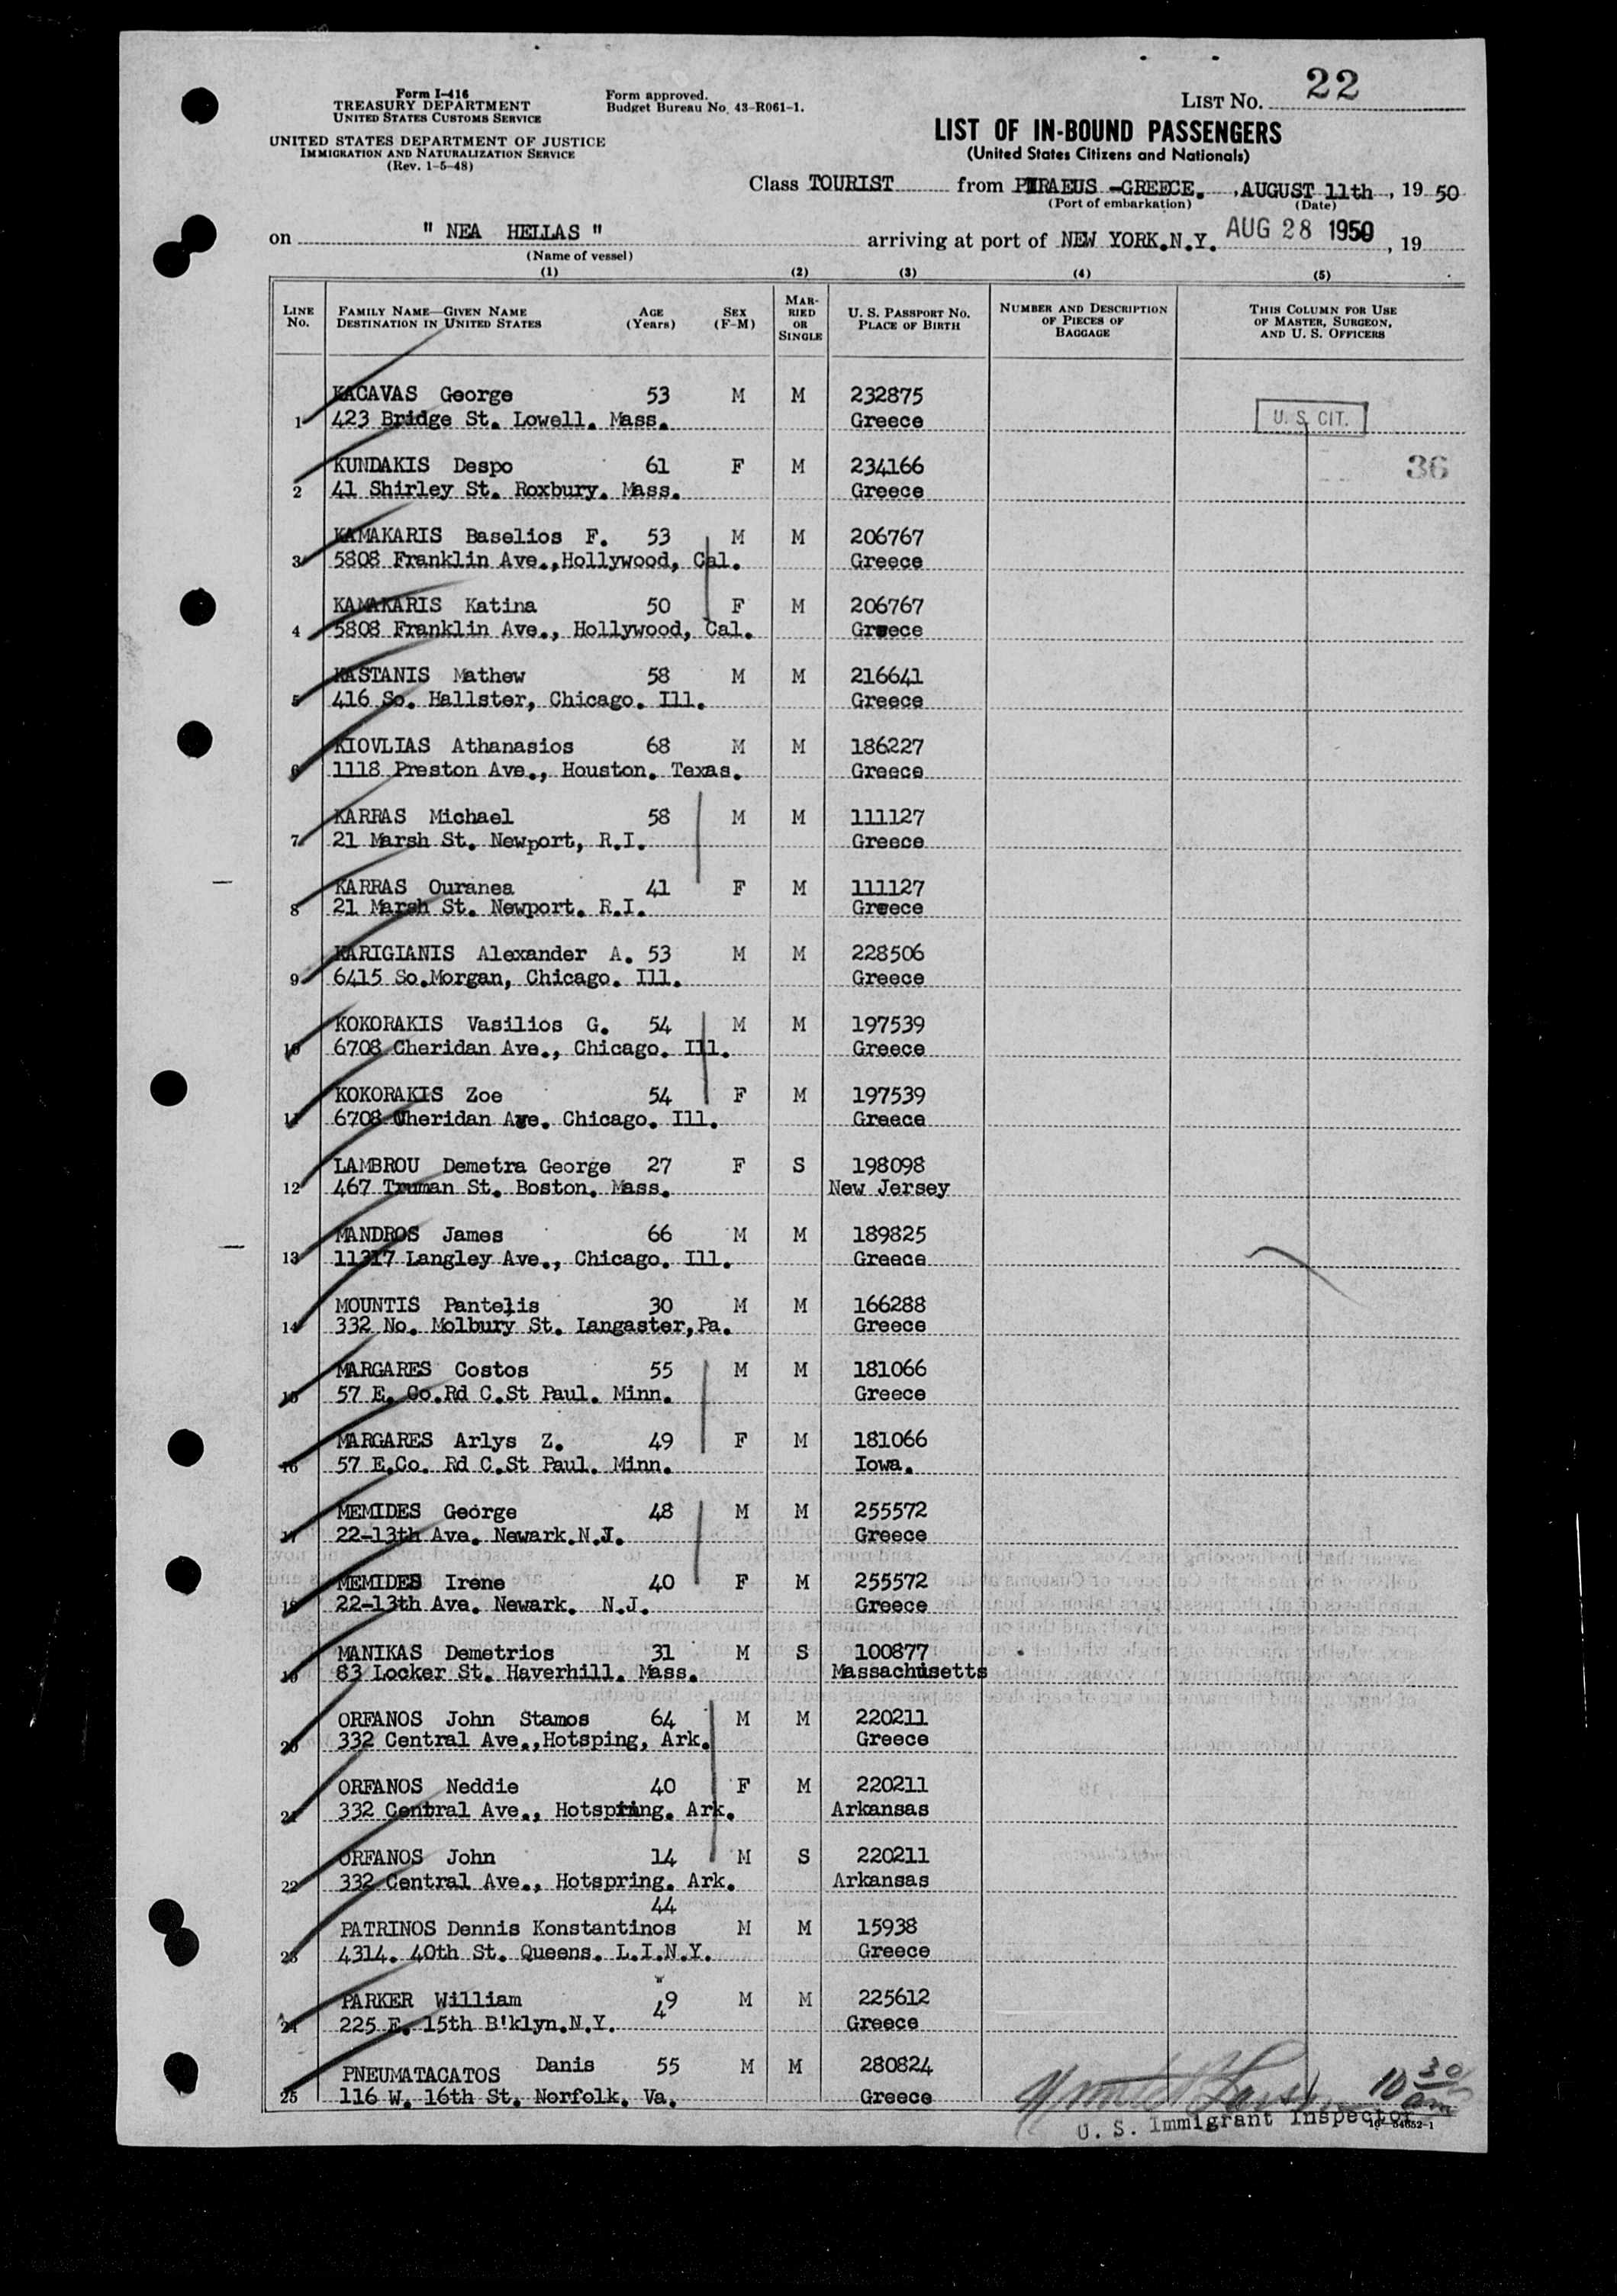 Form I-416
TREASURY DEPARTMENT
UNITED STATES CUSTOMS SERVICE
UNITED STATES DEPARTMENT OF JUSTICE
IMMIGRATION AND NATURALIZATION SERVICE
(Rev. 1-5-48)
Form approved.
Budget Bureau No. 43-R061-1.
LIST NO. 22
LIST OF IN-BOUND PASSENGERS
(United States Citizens and Nationals)
Class TOURIST from PIRAEUS -GREECE. , AUGUST 11th , 19 50
(Port of embarkation) (Date)
on " NEA HELLAS " arriving at port of NEW YORK.N.Y. AUG 28 1950 , 19
(Name of vessel)
(1) (2) (3) (4) (5)
LINE No. FAMILY NAME—GIVEN NAME DESTINATION IN UNITED STATES AGE (Years) SEX (F-M) MARRIED OR SINGLE U. S. PASSPORT No. PLACE OF BIRTH NUMBER AND DESCRIPTION OF PIECES OF BAGGAGE THIS COLUMN FOR USE OF MASTER, SURGEON, AND U. S. OFFICERS
KACAVAS George 53 M M 232875
1 423 Bridge St. Lowell. Mass. Greece U. S. CIT.
KUNDAKIS Despo 61 F M 234166 36
2 41 Shirley St. Roxbury. Mass. Greece
KAMAKARIS Baselios F. 53 M M 206767
3 5808 Franklin Ave.,Hollywood, Cal. Greece
KAMAKARIS Katina 50 F M 206767
4 5808 Franklin Ave., Hollywood, Cal. Greece
KASTANIS Mathew 58 M M 216641
5 416 So. Hallster, Chicago. Ill. Greece
KIOVLIAS Athanasios 68 M M 186227
6 1118 Preston Ave., Houston. Texas. Greece
KARRAS Michael 58 M M 111127
7 21 Marsh St. Newport, R.I. Greece
KARRAS Ouranea 41 F M 111127
8 21 Marsh St. Newport. R.I. Greece
KARIGIANIS Alexander A. 53 M M 228506
9 6415 So.Morgan, Chicago. Ill. Greece
KOKORAKIS Vasilios G. 54 M M 197539
10 6708 Cheridan Ave., Chicago. Ill. Greece
KOKORAKIS Zoe 54 F M 197539
11 6708 Cheridan Ave. Chicago. Ill. Greece
LAMBROU Demetra George 27 F S 198098
12 467 Truman St. Boston. Mass. New Jersey
MANDROS James 66 M M 189825
13 11317 Langley Ave., Chicago. Ill. Greece
MOUNTIS Pantelis 30 M M 166288
14 332 No. Molbury St. Langaster,Pa. Greece
MARGARES Costos 55 M M 181066
15 57 E. Co.Rd C.St Paul. Minn. Greece
MARGARES Arlys Z. 49 F M 181066
16 57 E.Co. Rd C.St Paul. Minn. Iowa.
MEMIDES George 48 M M 255572
17 22-13th Ave. Newark.N.J. Greece
MEMIDES Irene 40 F M 255572
18 22-13th Ave. Newark. N.J. Greece
MANIKAS Demetrios 31 M S 100877
19 83 Locker St. Haverhill. Mass. Massachusetts
ORFANOS John Stamos 64 M M 220211
20 332 Central Ave.,Hotsping, Ark. Greece
ORFANOS Neddie 40 F M 220211
21 332 Central Ave., Hotspring. Ark. Arkansas
ORFANOS John 14 M S 220211
22 332 Central Ave., Hotspring. Ark. Arkansas
44
PATRINOS Dennis Konstantinos M M 15938
23 4314. 40th St. Queens. L.I.N.Y. Greece
PARKER William 49 M M 225612
24 225 E. 15th B'klyn.N.Y. Greece
PNEUMATACATOS Danis 55 M M 280824
25 116 W. 16th St. Norfolk. Va. Greece
10 30 am
U. S. Immigrant Inspector